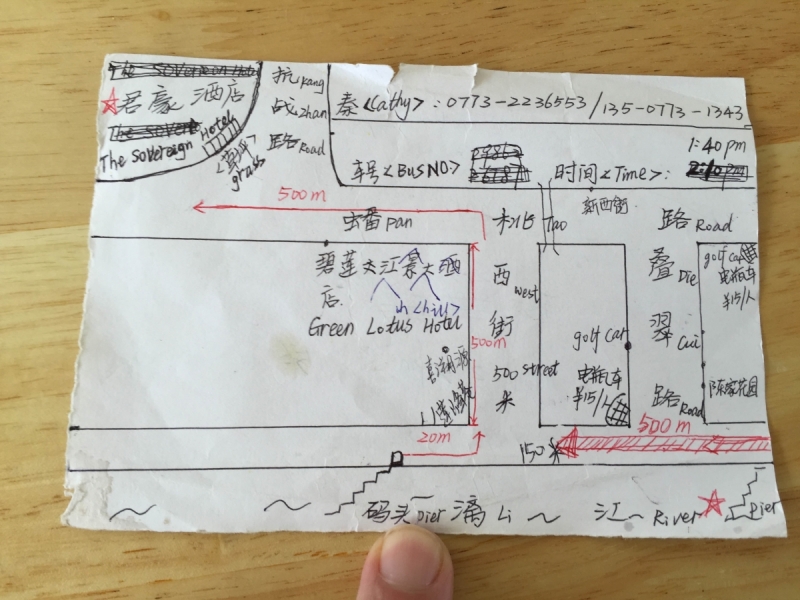 The Sovereign Hotel
君豪酒店
The Sovere
The Sovereign Hotel
<草坪>
grass
抗 Kang
战 zhan
路 Road
秦<Cathy>: 0773-2236553/135-0773-1343
车号<BUS NO>
时间<Time>:
1:40pm
2:10pm
500m
蟠 Pan
桃 Tao
新西街
路 Road
碧莲大江景大酒
店
Green Lotus Hotel
西 west
街
500 street
米
500m
20m
golf car
电瓶车
¥15/人
叠 Die
翠 Cui
路 Road
golf car
电瓶车
¥15/人
陈家花园
500m
150米
码头 Pier 漓 Li
江 River
Pier